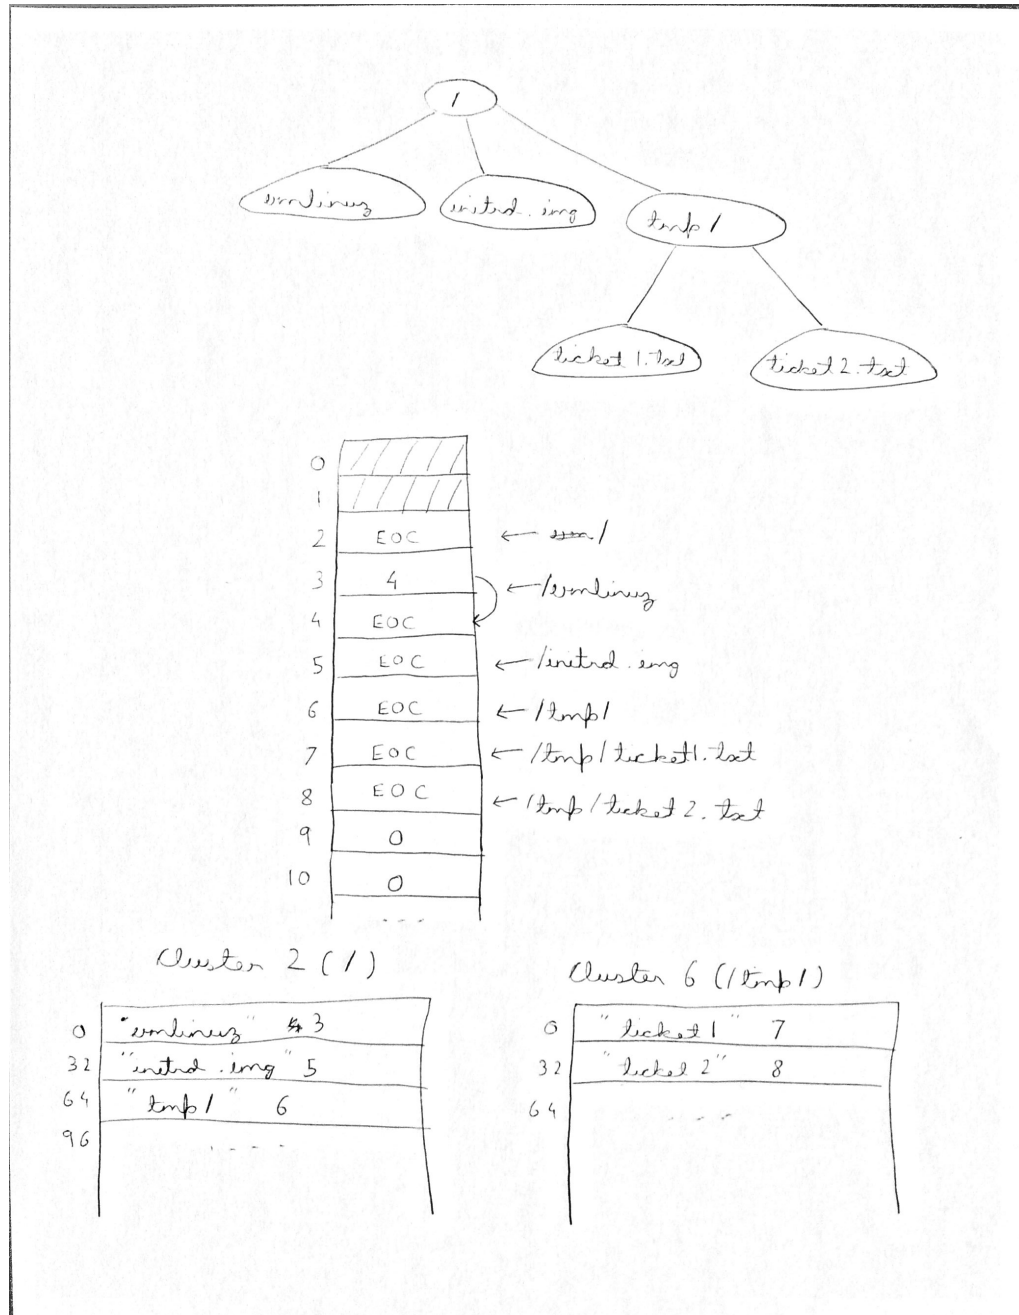 /
vmlinuz
initrd.img
tmp/
ticket1.txt
ticket2.txt
0
1
2 EOC ← /
3 4 ← /vmlinuz
4 EOC
5 EOC ← /initrd.img
6 EOC ← /tmp/
7 EOC ← /tmp/ticket1.txt
8 EOC ← /tmp/ticket2.txt
9 0
10 0
Cluster 2 (/)
0 "vmlinuz" 3
32 "initrd.img" 5
64 "tmp/" 6
96
Cluster 6 (/tmp/)
0 "ticket1" 7
32 "ticket2" 8
64